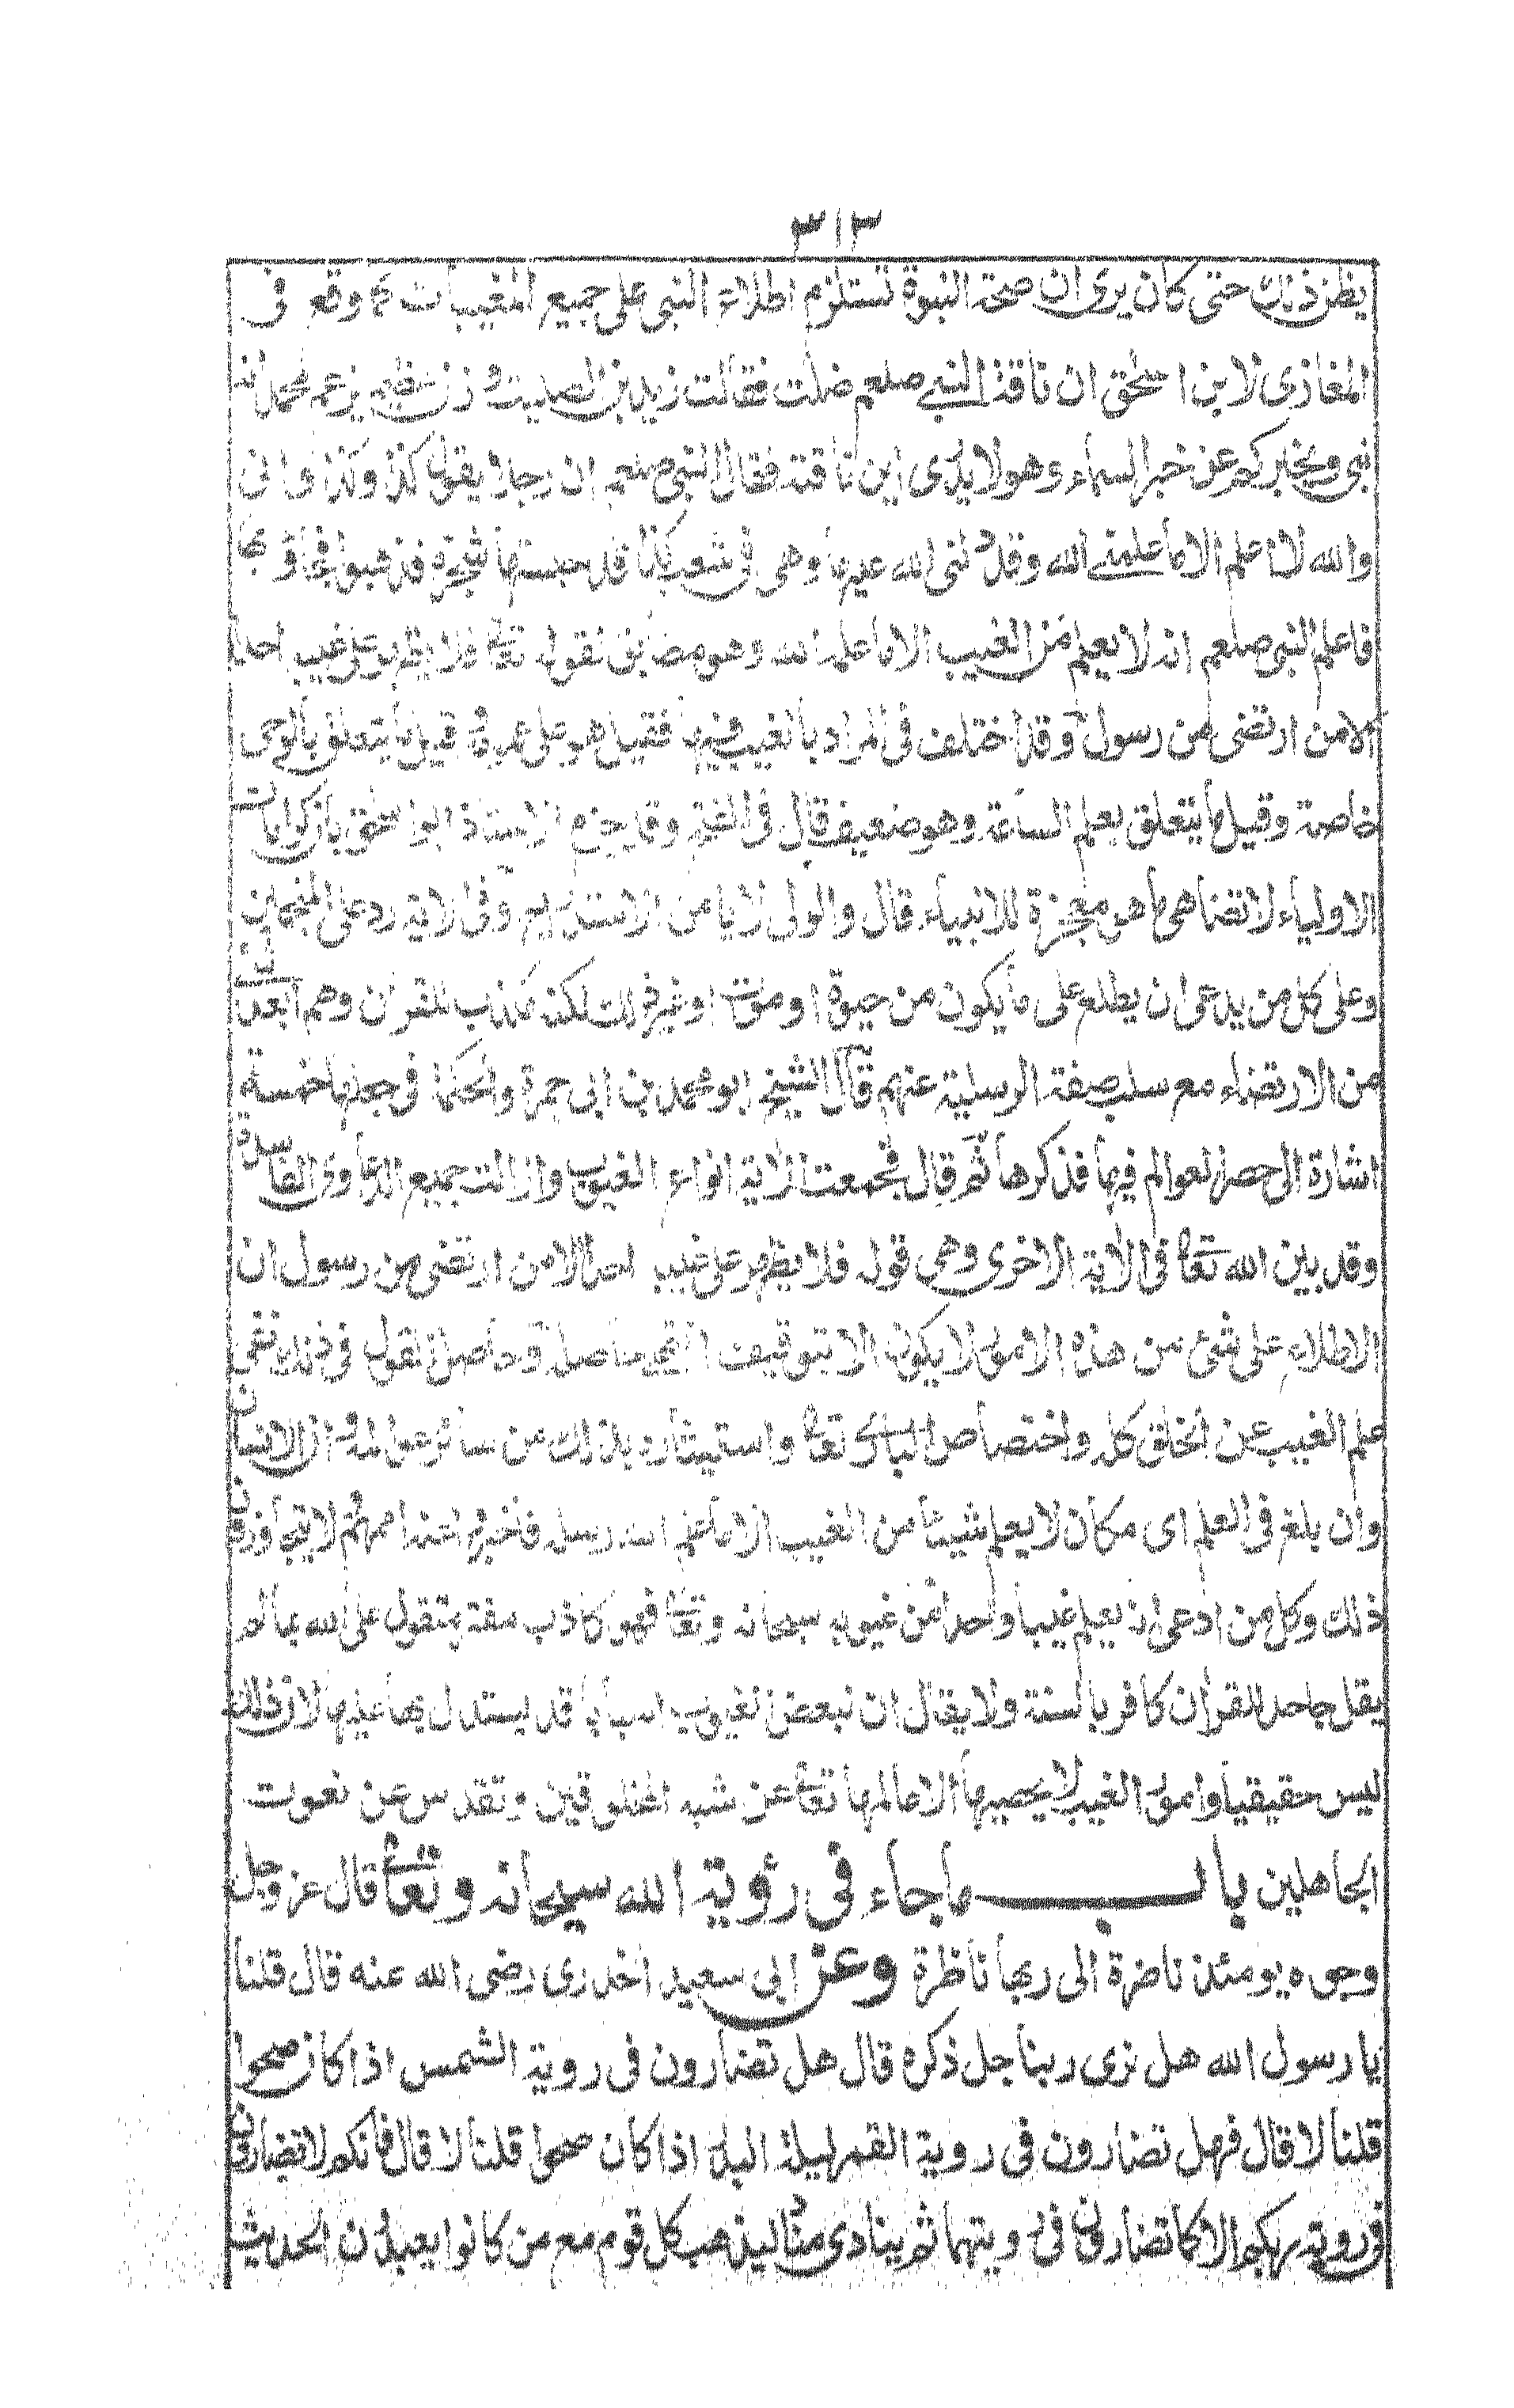 ٣١٣
يظن ذلك حتى كان يرى ان صحة النبوة تستلزم اطلاع النبي على جميع المغيبات كما وقع في
المغازى لابن اسحق ان ناقة النبي صلعم ضلت فقالت زيد بن الصليت وزن عظيم يزعم محمد انه
نبي ويخبركم عن خبر السماء وهو لا يدرى اين ناقته فقال النبي صلعم ان رجلا يقول كذا وكذا واني
والله لا اعلم الا ما علمني الله وقد دلني الله عليها وهى في شعب كذا قد حبستها شجرة فذهبوا فجاؤ بها
فاعلم النبي صلعم انه لا يعلم من الغيب الا ما علمه الله وهو مطابق لقوله تعالى فلا يظهر على غيبه احدا
الا من ارتضى من رسول وقد اختلف في المراد بالغيب فيها فقيل هو على عمومه وقيل ما يتعلق بالوحى
خاصة وقيل ما يتعلق بعلم الساعة وهو ضعيف قال في الفتح وقد جزم الاستاذ ابو اسحق بان كرامات
الاولياء لا تضاهى ما هو معجزة للانبياء قال والولى لا يامن الاستدراج وفي الاية رد على المنجمين
وعلى كل من يدعى ان يطلع على ما يكون من حيوة او موت او غير ذلك لكنه مكذب للقرآن وهم ابعد الناس
من الارتضاء مع سلب صفة الرسلية عنهم قال الشيخ ابو محمد بن ابى جمرة والحكمة في جعلها خمسة
اشارة الى حصر العوالم فيها فذكرها ثم قال فجمعت الاية انواع الغيوب وازالت جميع الدعاوى الفاسدة
وقد بين الله تعا في الاية الاخرى وهى قوله فلا يظهر على غيبه احدا الا من ارتضى من رسول ان
الاطلاع على شئ من هذه الامور لا يكون الا بتوقيف انتهى حاصله وحاصل القول في ذلك نفى
علم الغيب عن الخلق كله واختصاص البارى تعا واستيثاره بذلك من سائر عوالمه وان الانسان
وان بلغ في العلم اى مكان لا يعلم شيئا من الغيب الا ما علمه الله رسله فاخبروا عنه اممهم لا يتجاوزون
ذلك وكل من ادعى انه يعلم غيبا واحدا من غيوبه سبحانه وتعا فهو كاذب متقول على الله بما لم
يقل جاحد للقران كافر بالسنة ولا يقال ان لبعض الغيوب اسبابا قد يستدل بها عليها لان ذلك
ليس حقيقيا وامور الغيب لا يحصيها الا عالمها تعا عن شبه المخلوقين وتقدس عن نعوت
الجاهلين باب ما جاء فى رؤية الله سبحانه وتعا قال عز وجل
وجوه يومئذ ناضرة الى ربها ناظرة وعن ابى سعيد الخدرى رضى الله عنه قال قلنا
يا رسول الله هل نرى ربنا جل ذكره قال هل تضارون في روية الشمس اذا كان صحوا
قلنا لا قال فهل تضارون فى روية القمر ليلة البدر اذا كان صحوا قلنا لا قال فانكم لا تضارون
فى روية ربكم الا كما تضارون في رويتهما ثم ينادى مناد ليذهب كل قوم مع من كانوا يعبدون الحديث